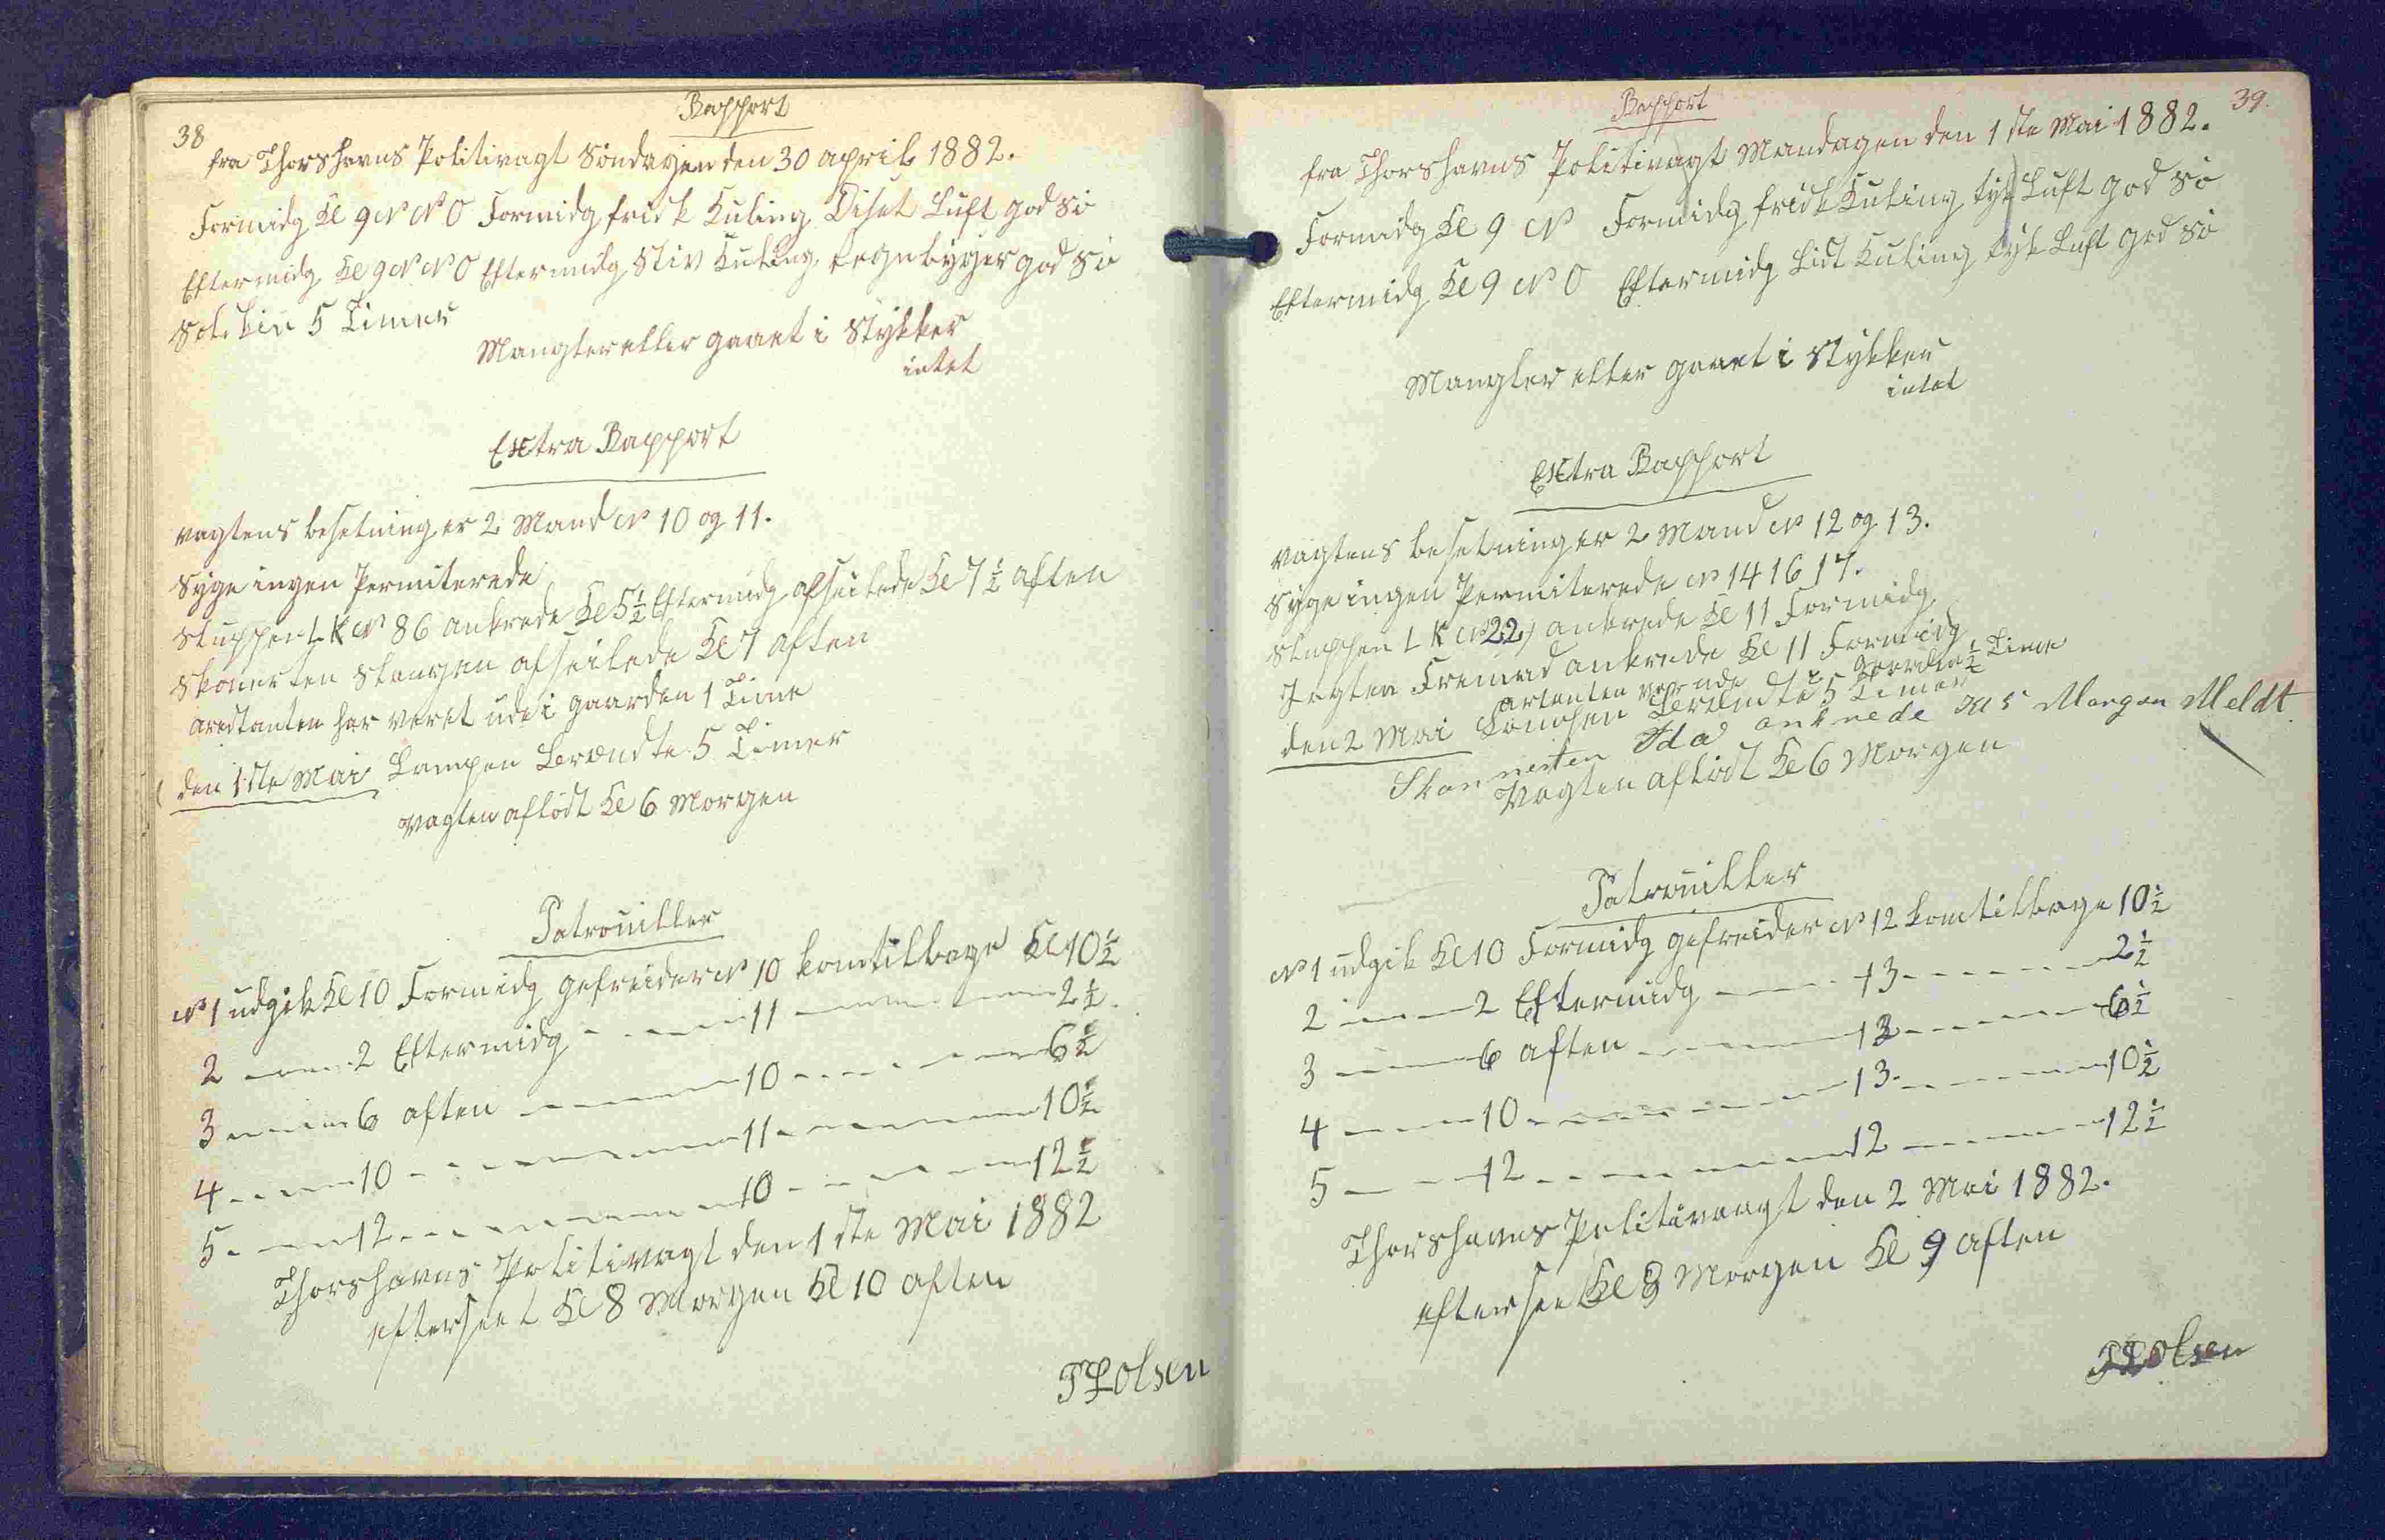 38
Rapport
fra Thorshavns Politivagt Søndagen den 30 april 1882.
Formidg Kl 9 N N O Formidg frisk Kuling Diset Luft god Sø
Eftermidg Kl 9 N N O Eftermidg Stiv Kuling regnbyger god Sø
5 Timer
Mangler eller gaaet i Stykker
intet
Extra Rapport
vagtens besetning er 2 Mand N 10 og 11.
Syge ingen Permiterede
Sluppen L K N 86 ankrede Kl 5½ Eftermidg afseilede Kl 7½ aften
Skonerten afseilede Kl 7 aften
arestanten har veret ude i gaarden 1 Time
den 1ste Mai Lampen Brændte 5 Timer
Vagten afløst Kl 6 Morgen
Patrouiller
N 1 udgik Kl 10 Formidg gefreider N 10 kom tilbage Kl 10½
2 - - - 2 Eftermidg - - - 11 - - - 2½
3 - - - 6 aften - - - 10 - - - 6½
4 - - - 10 - - - 11 - - - 10½
5 - - - 12 - - - 10 - - - 12½
Thorshavns Politivagt den 1ste Mai 1882
efterseet Kl 8 Morgen Kl 10 aften
Olsen
39.
Rapport
fra Thorshavns Politivagt Mandagen den 1ste Mai 1882.
Formidg Kl 9 N Formidg frisk Kuling tyk Luft god Sø
Eftermidg Kl 9 N O Eftermidg Lidt Kuling tyk Luft god Sø
Mangler eller gaaet i Stykker
intet
Extra Rapport
vagtens besetning er 2 Mand N 12 og 13.
Syge ingen Permiterede N 14 16 17.
Sluppen L K N 22 ankrede Kl 11 Formidg
Jagten Fremad ankrede Kl 11 Formidg
ude i Gaarden ½ Time
den 2 Mai Lampen Brændte 5 Timer
Skonnerten Ida ankrede Kl 5 Morgen Meldt
Vagten afløst Kl 6 Morgen
Patrouiller
N 1 udgik Kl 10 Formidg gefreider N 12 kom tilbage 10½
2 - - - 2 Eftermidg - - - 13 - - - 2½
3 - - - 6 aften - - - 12 - - - 6½
4 - - - 10 - - - 13 - - - 10½
5 - - - 12 - - - 12 - - - 12½
Thorshavns Politivagt den 2 Mai 1882.
efterseet Kl 8 Morgen Kl 9 aften
Olsen